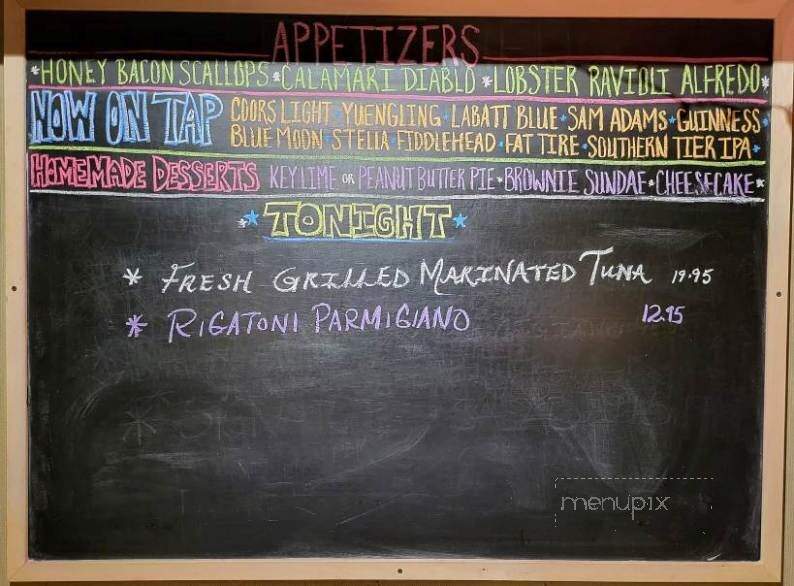 APPETIZERS
*HONEY BACON SCALLOPS*CALAMARI DIABLO *LOBSTER RAVIOLI ALFREDO*
NOW ON TAP COORS LIGHT · YUENGLING · LABATT BLUE · SAM ADAMS · GUINNESS ·
BLUE MOON · STELLA · FIDDLEHEAD · FAT TIRE · SOUTHERN TIER IPA ·
HOMEMADE DESSERTS KEY LIME OR PEANUT BUTTER PIE · BROWNIE SUNDAE * CHEESECAKE*
* TONIGHT *
* FRESH GRILLED MARINATED TUNA 19.95
* RIGATONI PARMIGIANO 12.95
menupix